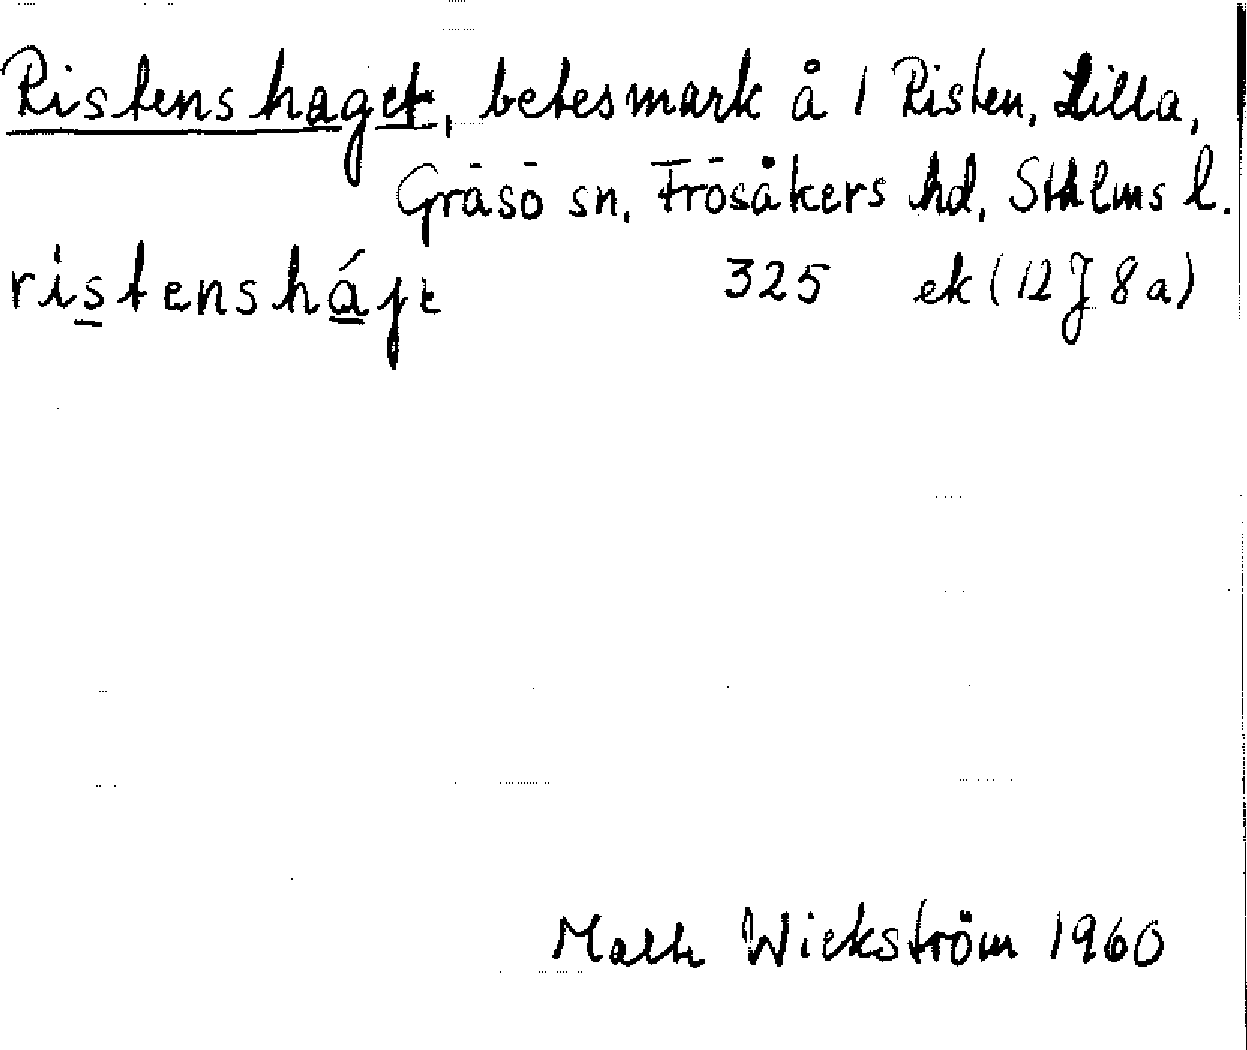 Ristenshaget, betesmark å 1 Risten, Lilla,
Gräsö sn, Frösåkers hd, Sthlms l.
ristensháge 325 ek (12 J 8 a)
Wickström 1960